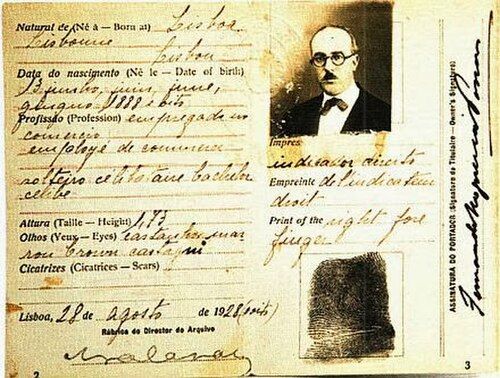 Natural de (Né à — Born at) Lisboa
Lisbonne
Lisbon
Data do nascimento (Né le — Date of birth)
13 junho, juin, june,
giugno 1888 oito
Profissão (Profession) empregado no
comercio
employé de commerce
solteiro célibataire bachelor
celibe
Altura (Taille — Height) 1,73
Olhos (Yeux — Eyes) castanhos mar
ron brown castagni
Cicatrizes (Cicatrices — Scars)
Lisboa, 28 de agosto de 1928 (oito)
Rúbrica do Director do Arquivo
2
Impres
indicador direito
Empreinte de l'indicateur
droit
Print of the right fore
finger
ASSINATURA DO PORTADOR (Signature du Titulaire — Owner's Signature)
Fernando Nogueira Pessoa
3